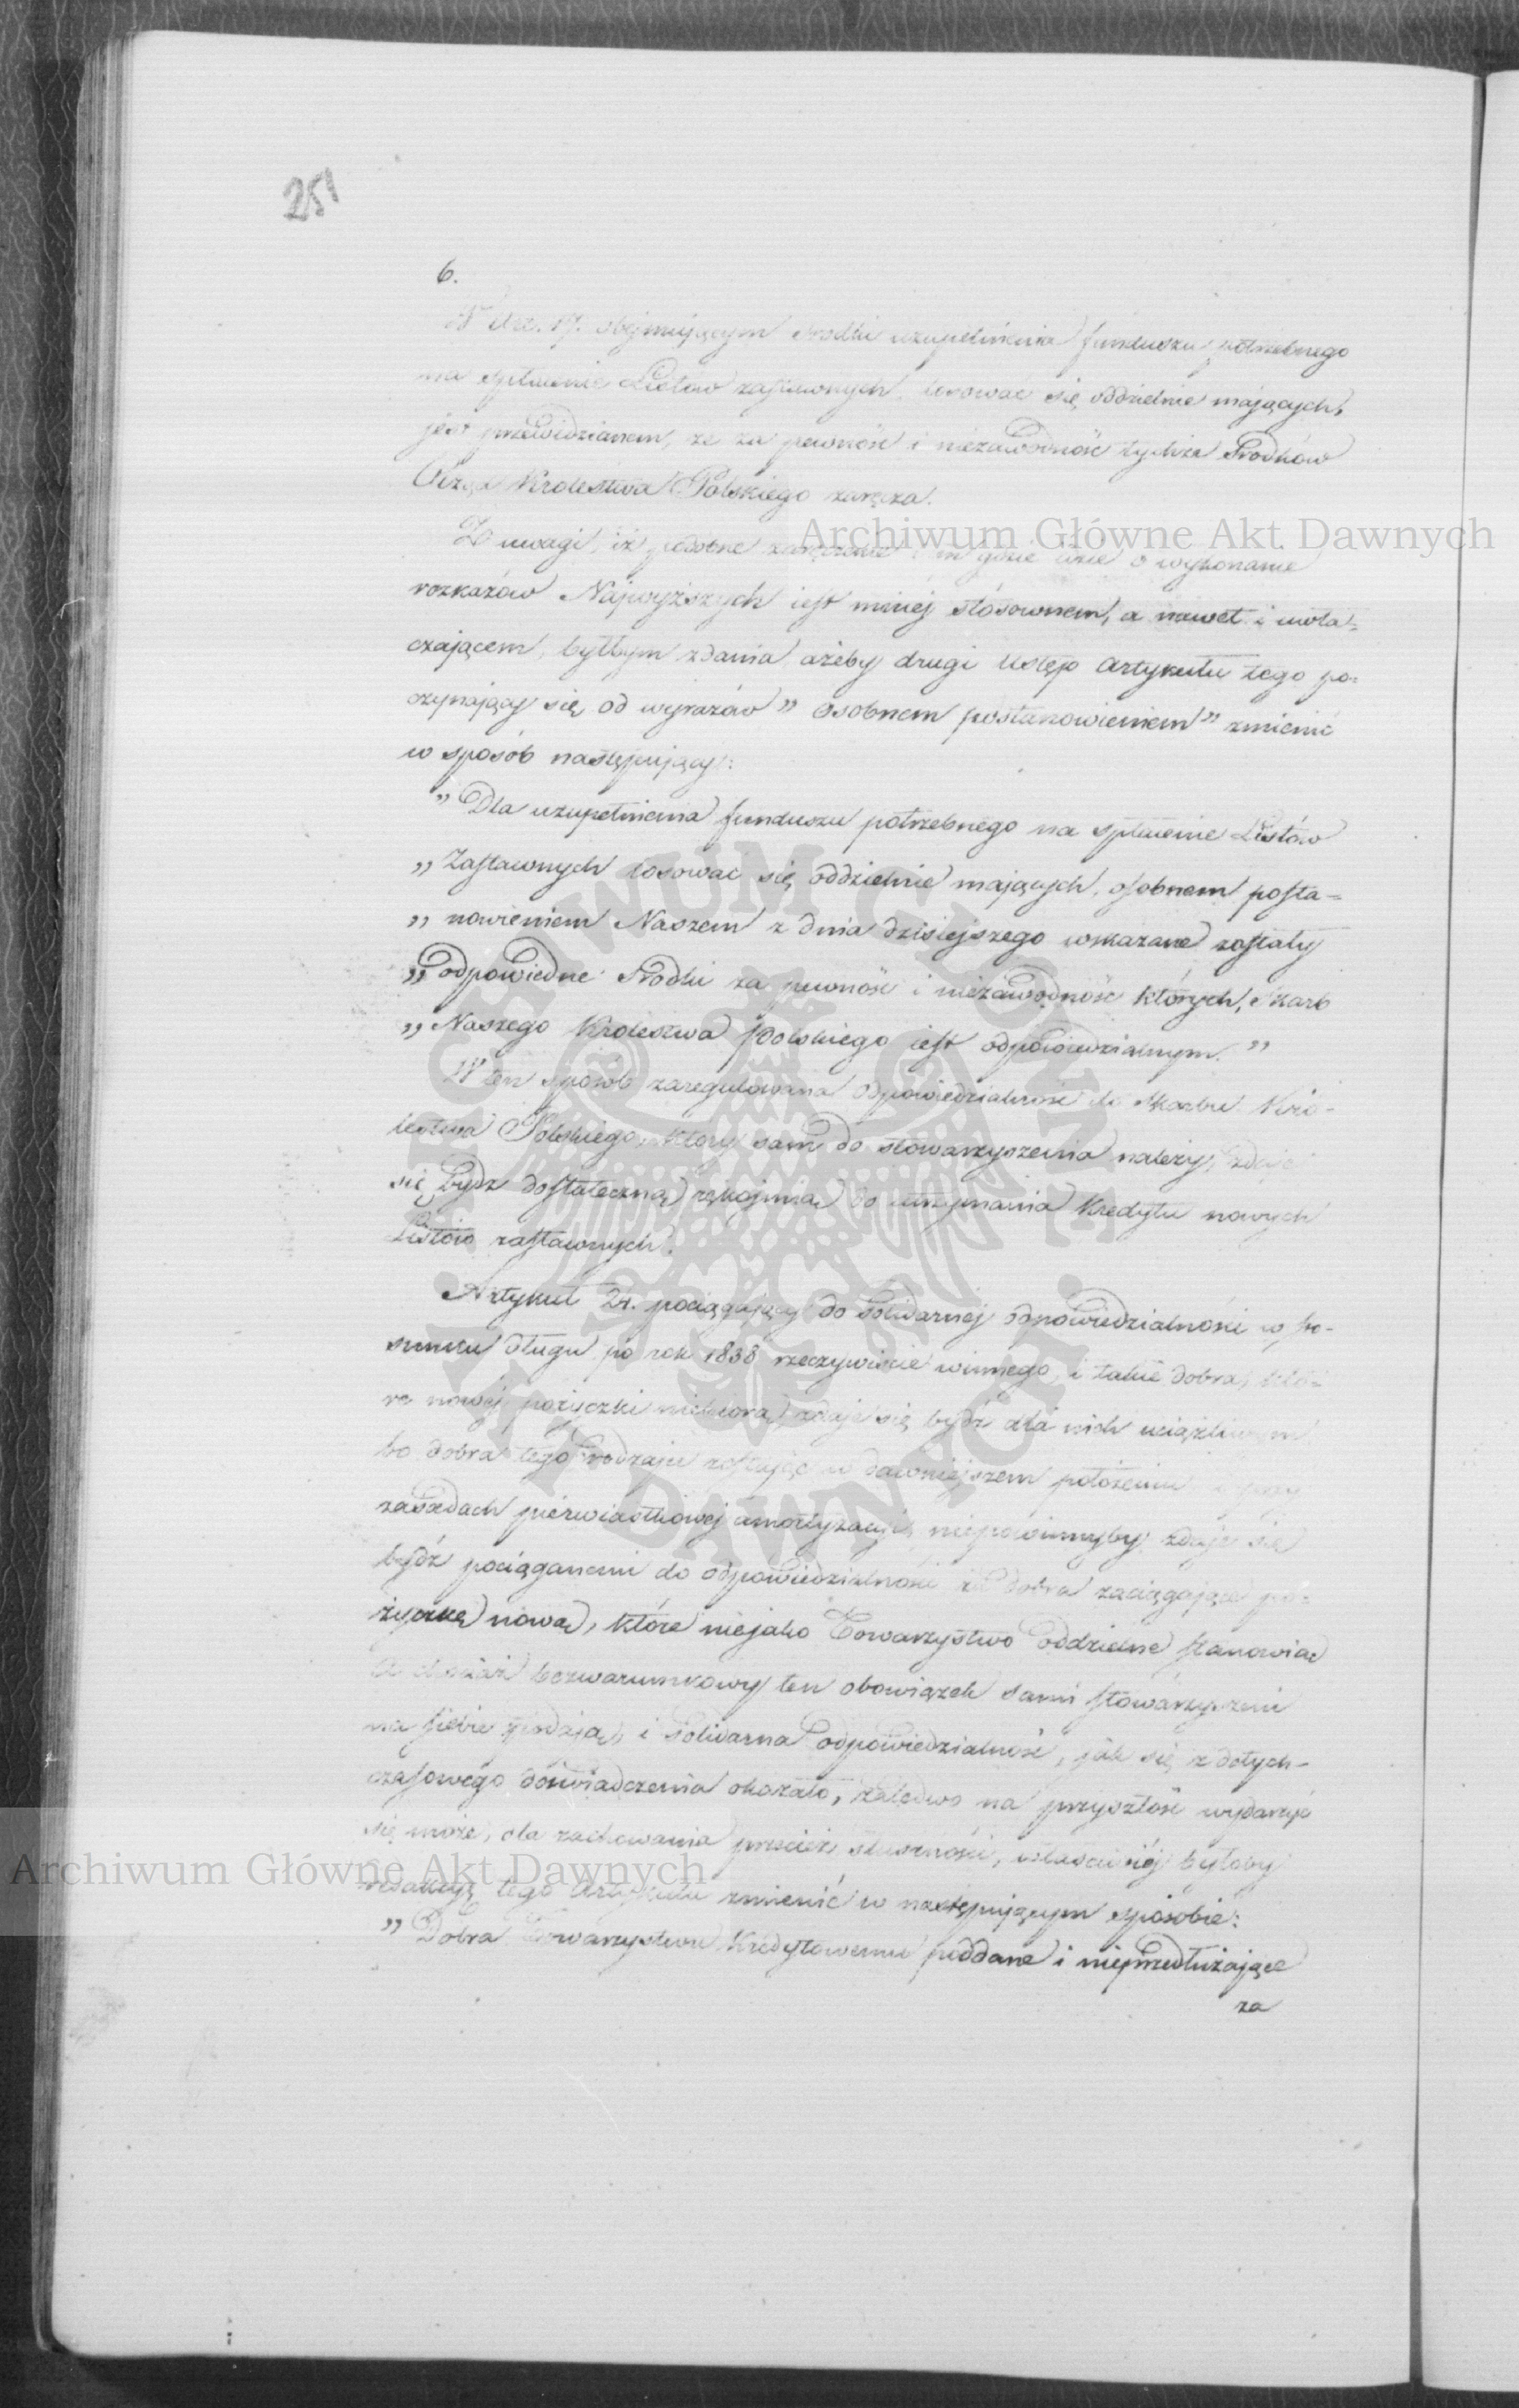 251
6.
W Art. 17. obejmującym środki uzupełnienia funduszu potrzebnego
na spłacenie Listów zastawnych, losować się oddzielnie mających,
jest przewidzianem, że za pewność i niezawodność tychże środków
Rząd Królestwa Polskiego zaręcza.
Z uwagi, iż podobne zaręczenie tam gdzie idzie o wykonanie
rozkazów Najwyższych jest mniéj stósownem, a nawet i uwła-
czającem, byłbym zdania ażeby drugi ustęp artykułu tego po-
czynający się od wyrazów „osobnem postanowieniem” zmienić
w sposób następujący:
„Dla uzupełnienia funduszu potrzebnego na spłacenie Listów
„Zastawnych losować się oddzielnie mających, osobnem posta-
„nowieniem Naszem z dnia dzisiejszego wskazane zostały
„odpowiedne środki za pewność i niezawodność których, Skarb
„Naszego Królestwa Polskiego jest odpowiedzialnym.”
W ten sposób zaregulowana odpowiedzialność do Skarbu Kró-
lestwa Polskiego, który sam do stowarzyszenia należy, zdaje
się bydź dostateczną rękojmią do utrzymania Kredytu nowych
Listów zastawnych.
Artykuł 24. pociągający do solidarnej odpowiedzialności w sto-
sunku długu po rok 1838 rzeczywiście winnego, i takie dobra, któ-
re nowej pożyczki niebiorą, zdaje się bydź dla nich uciążliwym
bo dobra tego rodzaju zostając w dawniejszem położeniu i przy
zasadach pierwiastkowej amortyzacyi, niepowinnyby zdaje się
bydź pociąganemi do odpowiedzialności za dobra zaciągające po-
życzkę nową, które niejako Towarzystwo oddzielne stanowią
A chociaż bezwarunkowy ten obowiązek sami stowarzyszeni
na siebie wkładają, i solidarna odpowiedzialność, jak się z dotych-
czasowego doświadczenia okazało, zaledwo na przyszłość wydarzyć
się może, dla zachowania przecież słuszności, właściwiéj byłoby
redakcyą tego Artykułu zmienić w następującym sposobie:
„Dobra Towarzystwu Kredytowemu poddane i nieprzedłużające
za
Archiwum Główne Akt Dawnych
Archiwum Główne Akt Dawnych
ARCHIWUM GŁÓWNE AKT DAWNYCH